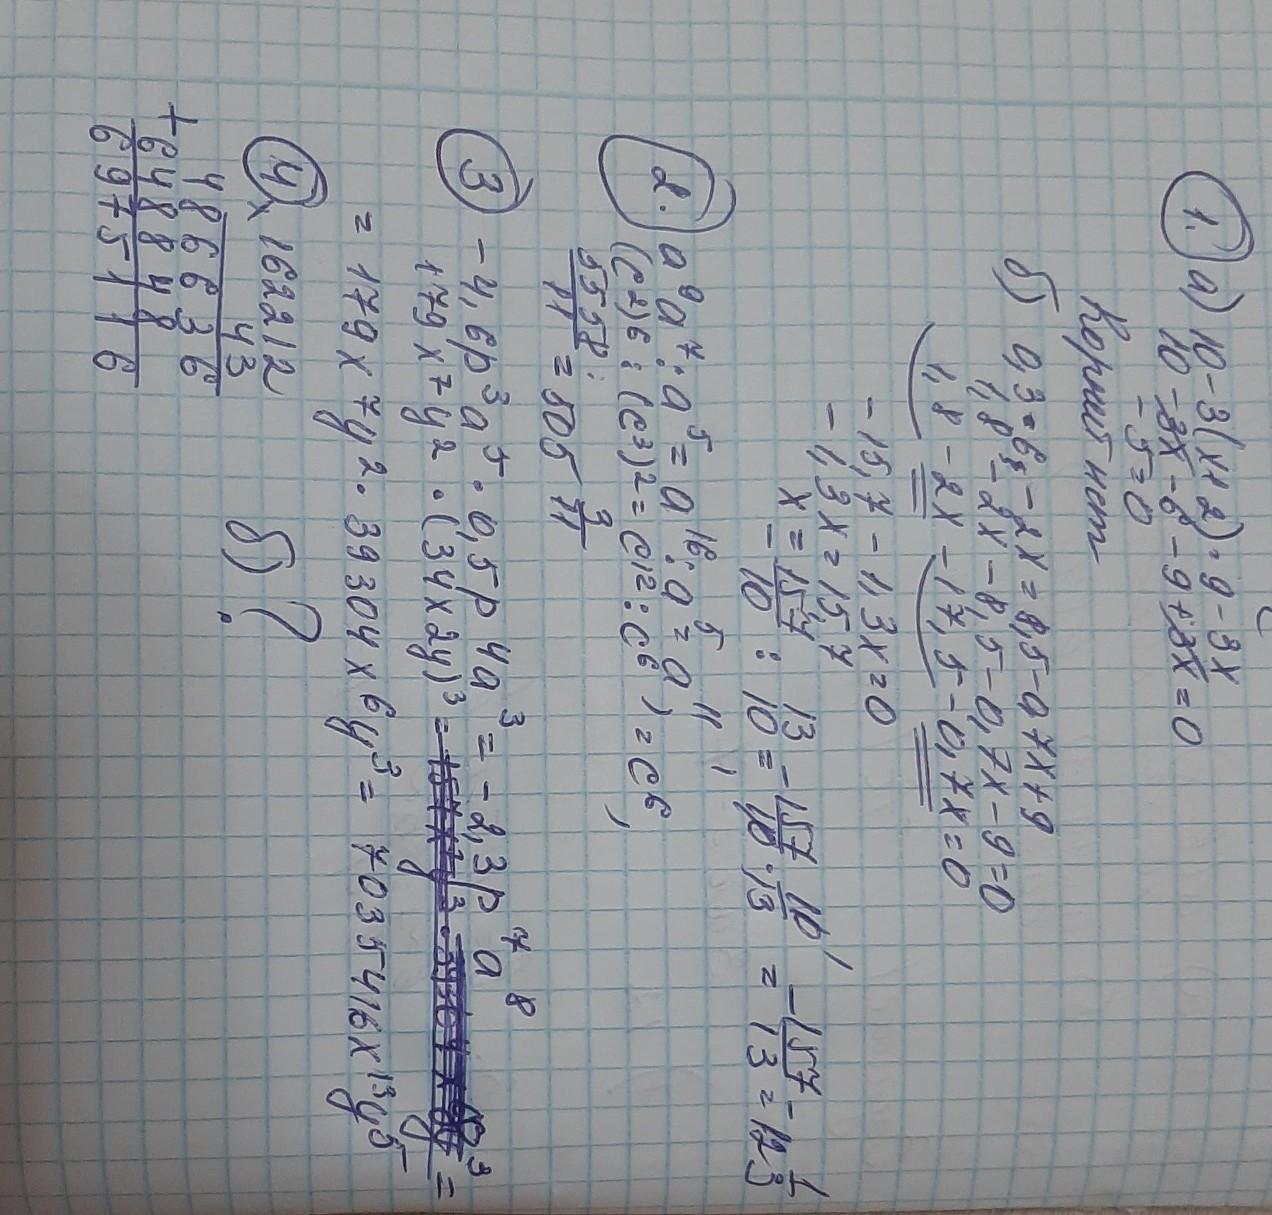 1. а) 10 - 3(x+2) = 9 - 3x
10 - 3x - 6 - 9 + 3x = 0
- 5 = 0
Корней нет
б) 0,3 · 6 - 2x = 8,5 - 0,7x + 9
1,8 - 2x - 8,5 - 0,7x - 9 = 0
1,8 - 2x - 17,5 - 0,7x = 0
- 15,7 - 1,3x = 0
- 1,3x = 15,7
x = - 15,7/10 : 13/10 = - 157/10 · 10/13 = - 157/13 = - 12 1/3
2. a⁹a⁷ : a⁵ = a¹⁶ : a⁵ = a¹¹,
(c2)6 : (c³)2 = c¹² : c⁶) = c⁶,
5558/11 = 505 3/11
3 - 4,6p³a⁵ · 0,5p4a³ = - 2,3p⁷a⁸
179x7y2 · (34x2y)³ =
= 179x7y2 · 39304x6y³ = 7035416x¹³y⁵
4 × 162212
43
486636
+ 648848
6975116
б) ?